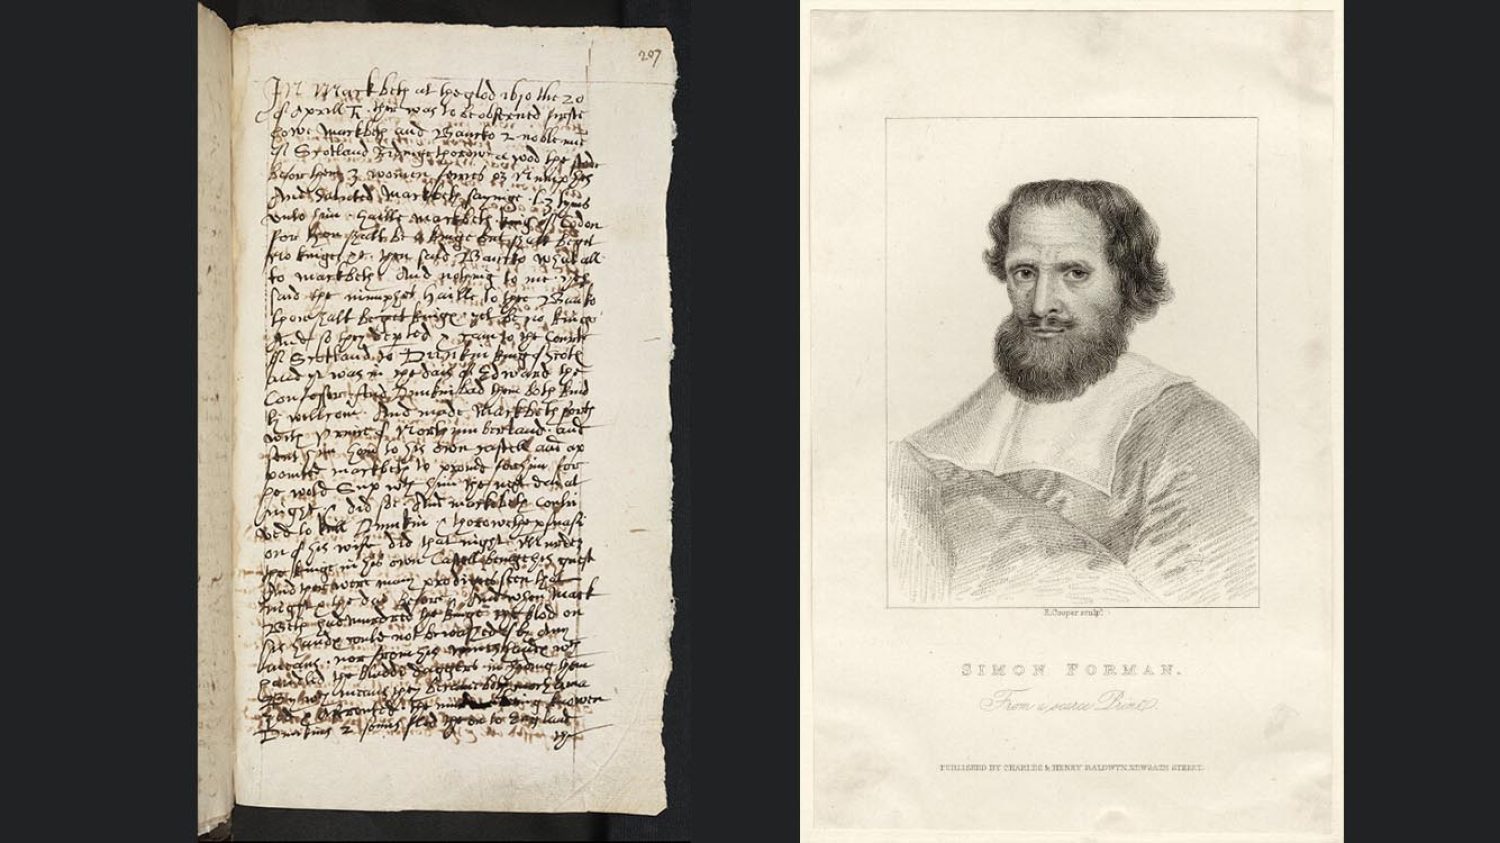 207
In Mackbeth at the glod 1610 the 20
of Aprill ther was to be observed firste
howe Mackbeth and Bancko 2 noble men
of Scotland Ridinge thorow a wod the
before them 3 women feiries or Nimphes
And Saluted Mackbeth sayinge . 3 tyms
unto him . haille Mackbeth . king of Codon
for thou shalt be a kinge but shalt beget
no kinges &c. then said Bancko what all
to mackbeth And nothing to me . yes
said the nimphes haille to thee Bancko
thou shalt beget kinges yet be no kinge
And so they departed & cam to the Courte
of Scotland to Dunkin king of Scotes
and yt was in the dais of Edward the
Confessor . And Dunkin bad them both kind
ly wellcom . And made Mackbeth forth
with Prince of Northumberland . and
sent him hom to his own castell and ap
pointed mackbeth to provid for him for
he wold Sup with him the next dai at
night & did soe . And mackbeth contri
ved to kill Dunkin & thorowe the persuasi
on of his wife did that night Murder
the kinge in his own Castell beinge his guest
And ther were many prodigies seen that
night & the dai before . And when Mack
Beth had murdred the kinge the blod on
his handes could not be washed of by Any
means . nor from his wives handes which
handled the bloddi daggers in hiding them
By which means they became both moch ama
zed & Affronted . the murder being knowen
Dunkins 2 sonns fled the on to England
the
E. Cooper sculpt.
SIMON FORMAN.
From a scarce Print.
PUBLISHED BY CHARLES & HENRY BALDWYN, NEWGATE STREET.